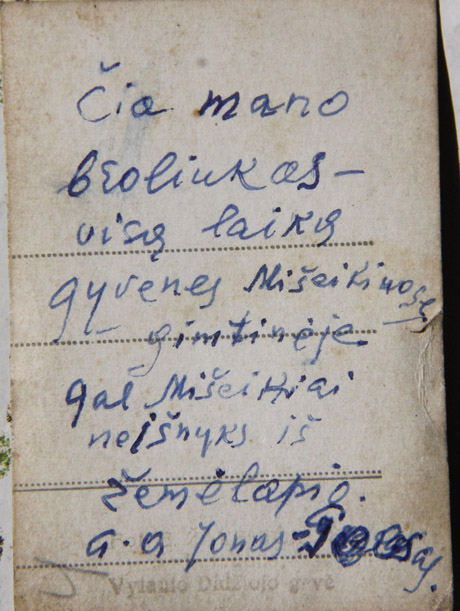 Čia mano
broliukas–
visą laiką
gyvenęs Mišeikiuose
gimtinėje
gal Mišeikiai
neišnyks iš
žemėlapio.
a.a Jonas-
Vytauto Didžiojo g-vė